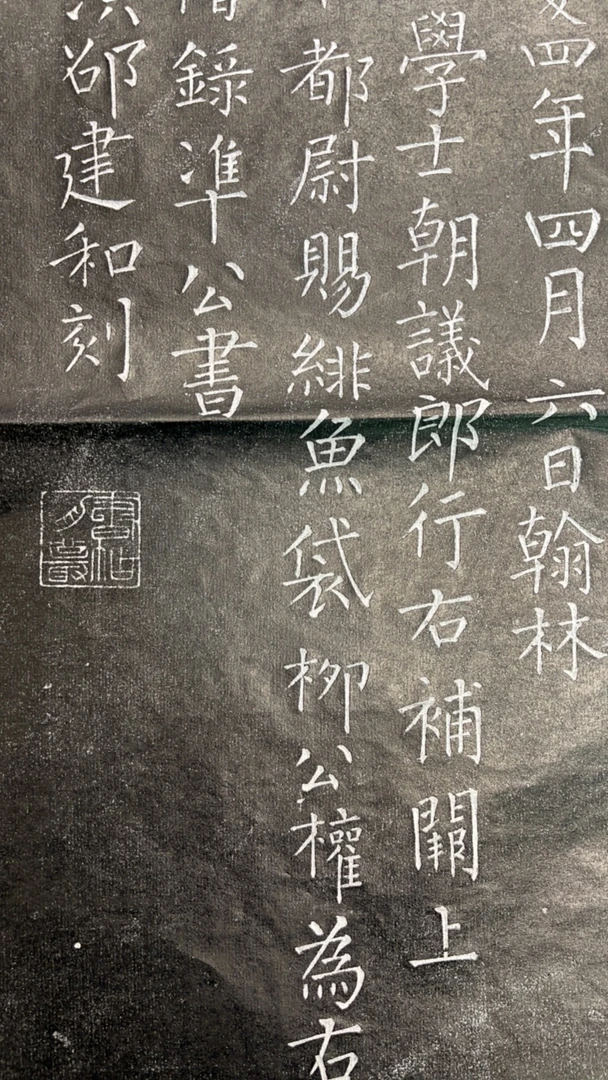 四年四月六日翰林
學士朝議郎行右補闕上
都尉賜緋魚袋柳公權為右
錄準公書
邵建和刻